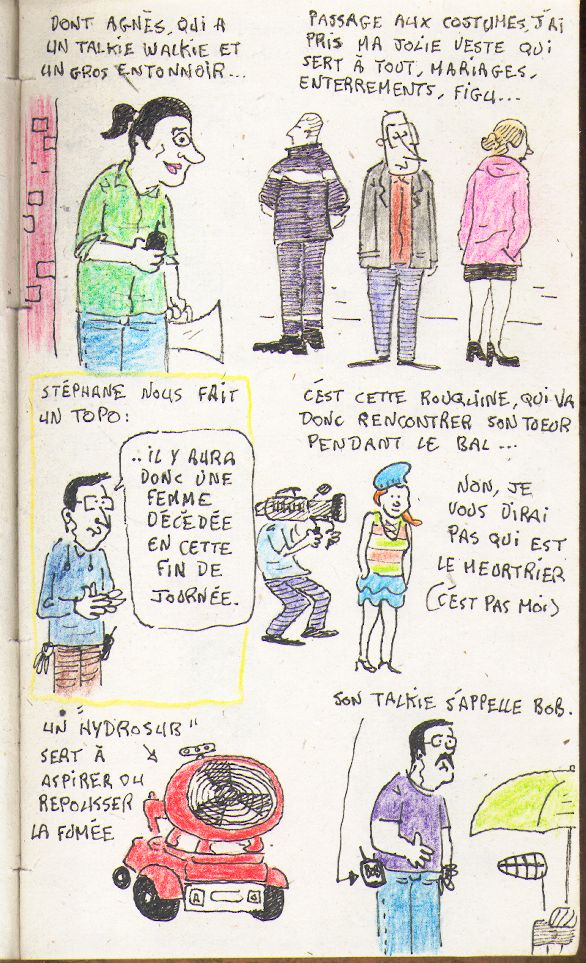 DONT AGNÈS, QUI A
UN TALKIE WALKIE ET
UN GROS ENTONNOIR...
PASSAGE AUX COSTUMES, J'AI
PRIS MA JOLIE VESTE QUI
SERT À TOUT, MARIAGES,
ENTERREMENTS, FIGU...
STÉPHANE NOUS FAIT
UN TOPO:
..IL Y AURA
DONC UNE
FEMME
DÉCÉDÉE
EN CETTE
FIN DE
JOURNÉE.
C'EST CETTE ROUQUINE, QUI VA
DONC RENCONTRER SON TUEUR
PENDANT LE BAL...
NON, JE
VOUS DIRAI
PAS QUI EST
LE MEURTRIER
(C'EST PAS MOI)
UN "HYDROSUB"
SERT À
ASPIRER OU
REPOUSSER
LA FUMÉE
SON TALKIE S'APPELLE BOB.